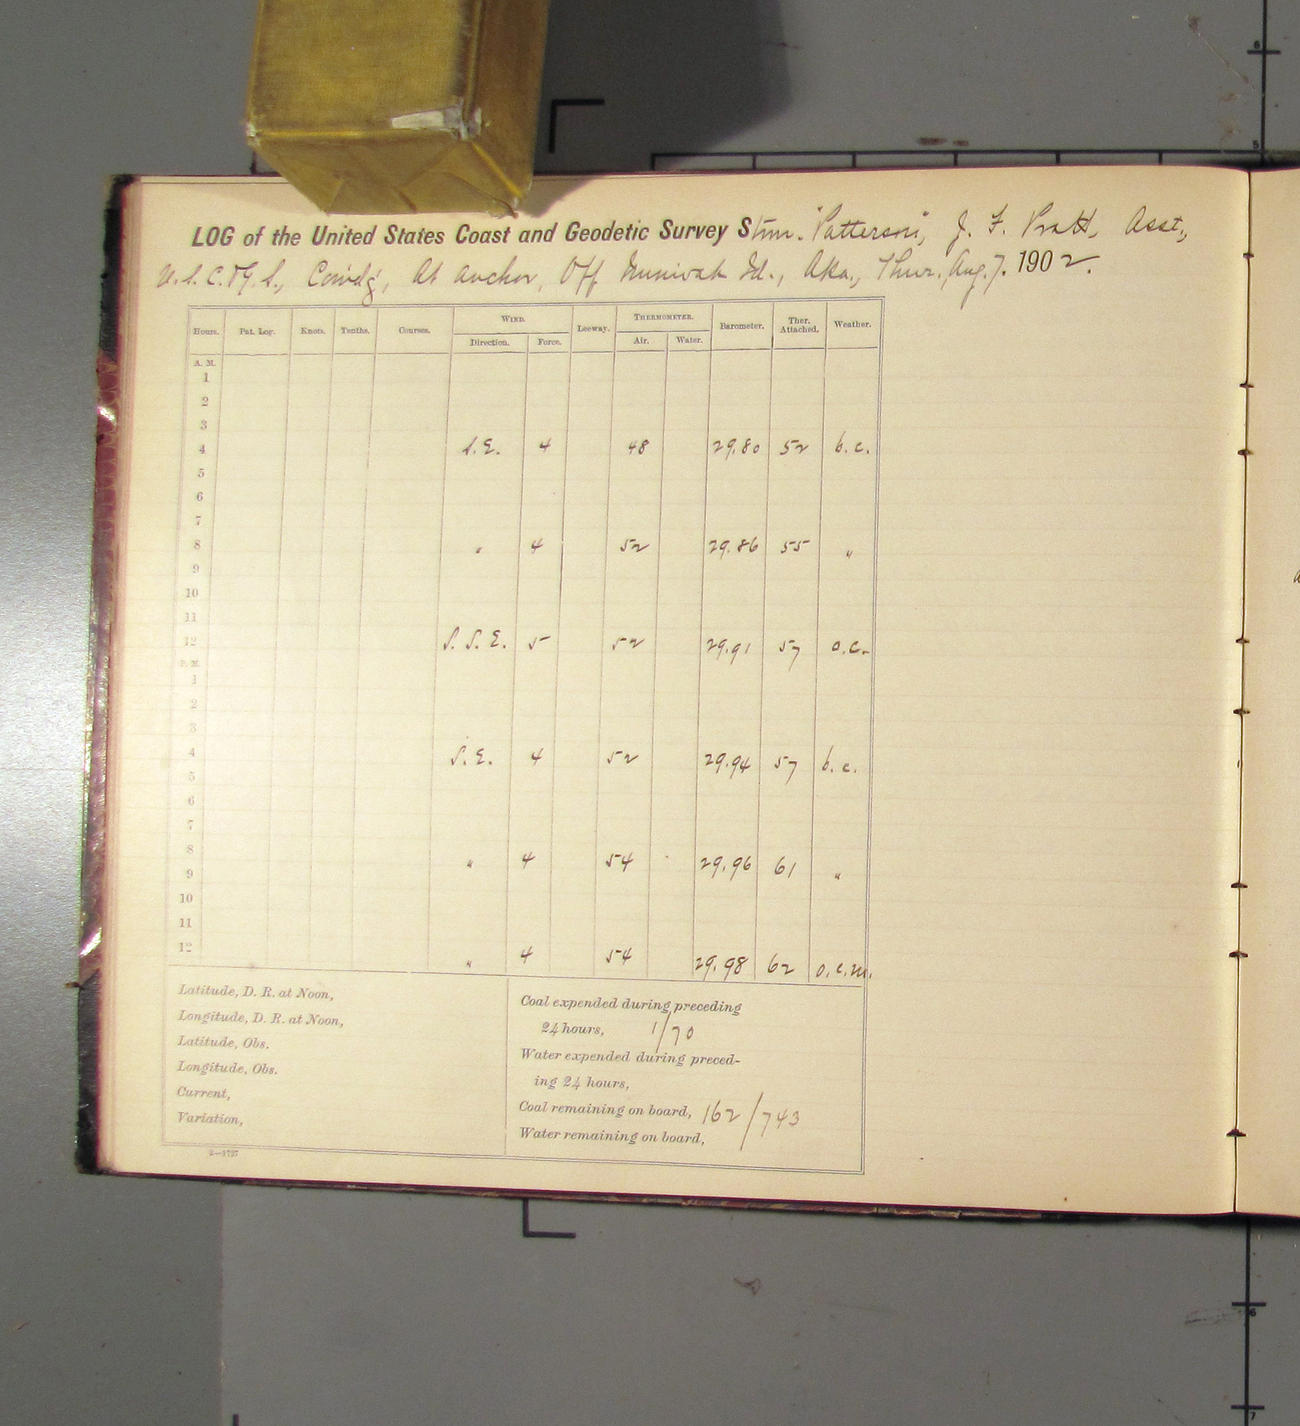 LOG of the United States Coast and Geodetic Survey Stmr. "Patterson", J. F. Pratt, Asst.,
U.S.C.&G.S., Comd'g, At anchor, Off Nunivak Id., Aka., Thur. Aug. 7. 1902.
Hours. Pat. Log. Knots. Tenths. Courses. WIND. Leeway. THERMOMETER. Barometer. Ther. Attached. Weather.
Direction. Force. Air. Water.
A. M.
1
2
3
4 S.E. 4 48 29.80 52 b.c.
5
6
7
8 " 4 52 29.86 55 "
9
10
11
12 S.S.E. 5 52 29.91 57 o.c.
P. M.
1
2
3
4 S.E. 4 52 29.94 57 b.c.
5
6
7
8 " 4 54 29.96 61 "
9
10
11
12 " 4 54 29.98 62 o.c.m.
Latitude, D. R. at Noon,
Longitude, D. R. at Noon,
Latitude, Obs.
Longitude, Obs.
Current,
Variation,
Coal expended during preceding
24 hours, 1/70
Water expended during preced-
ing 24 hours,
Coal remaining on board, 162/743
Water remaining on board,
2—1727
5
6
6
7